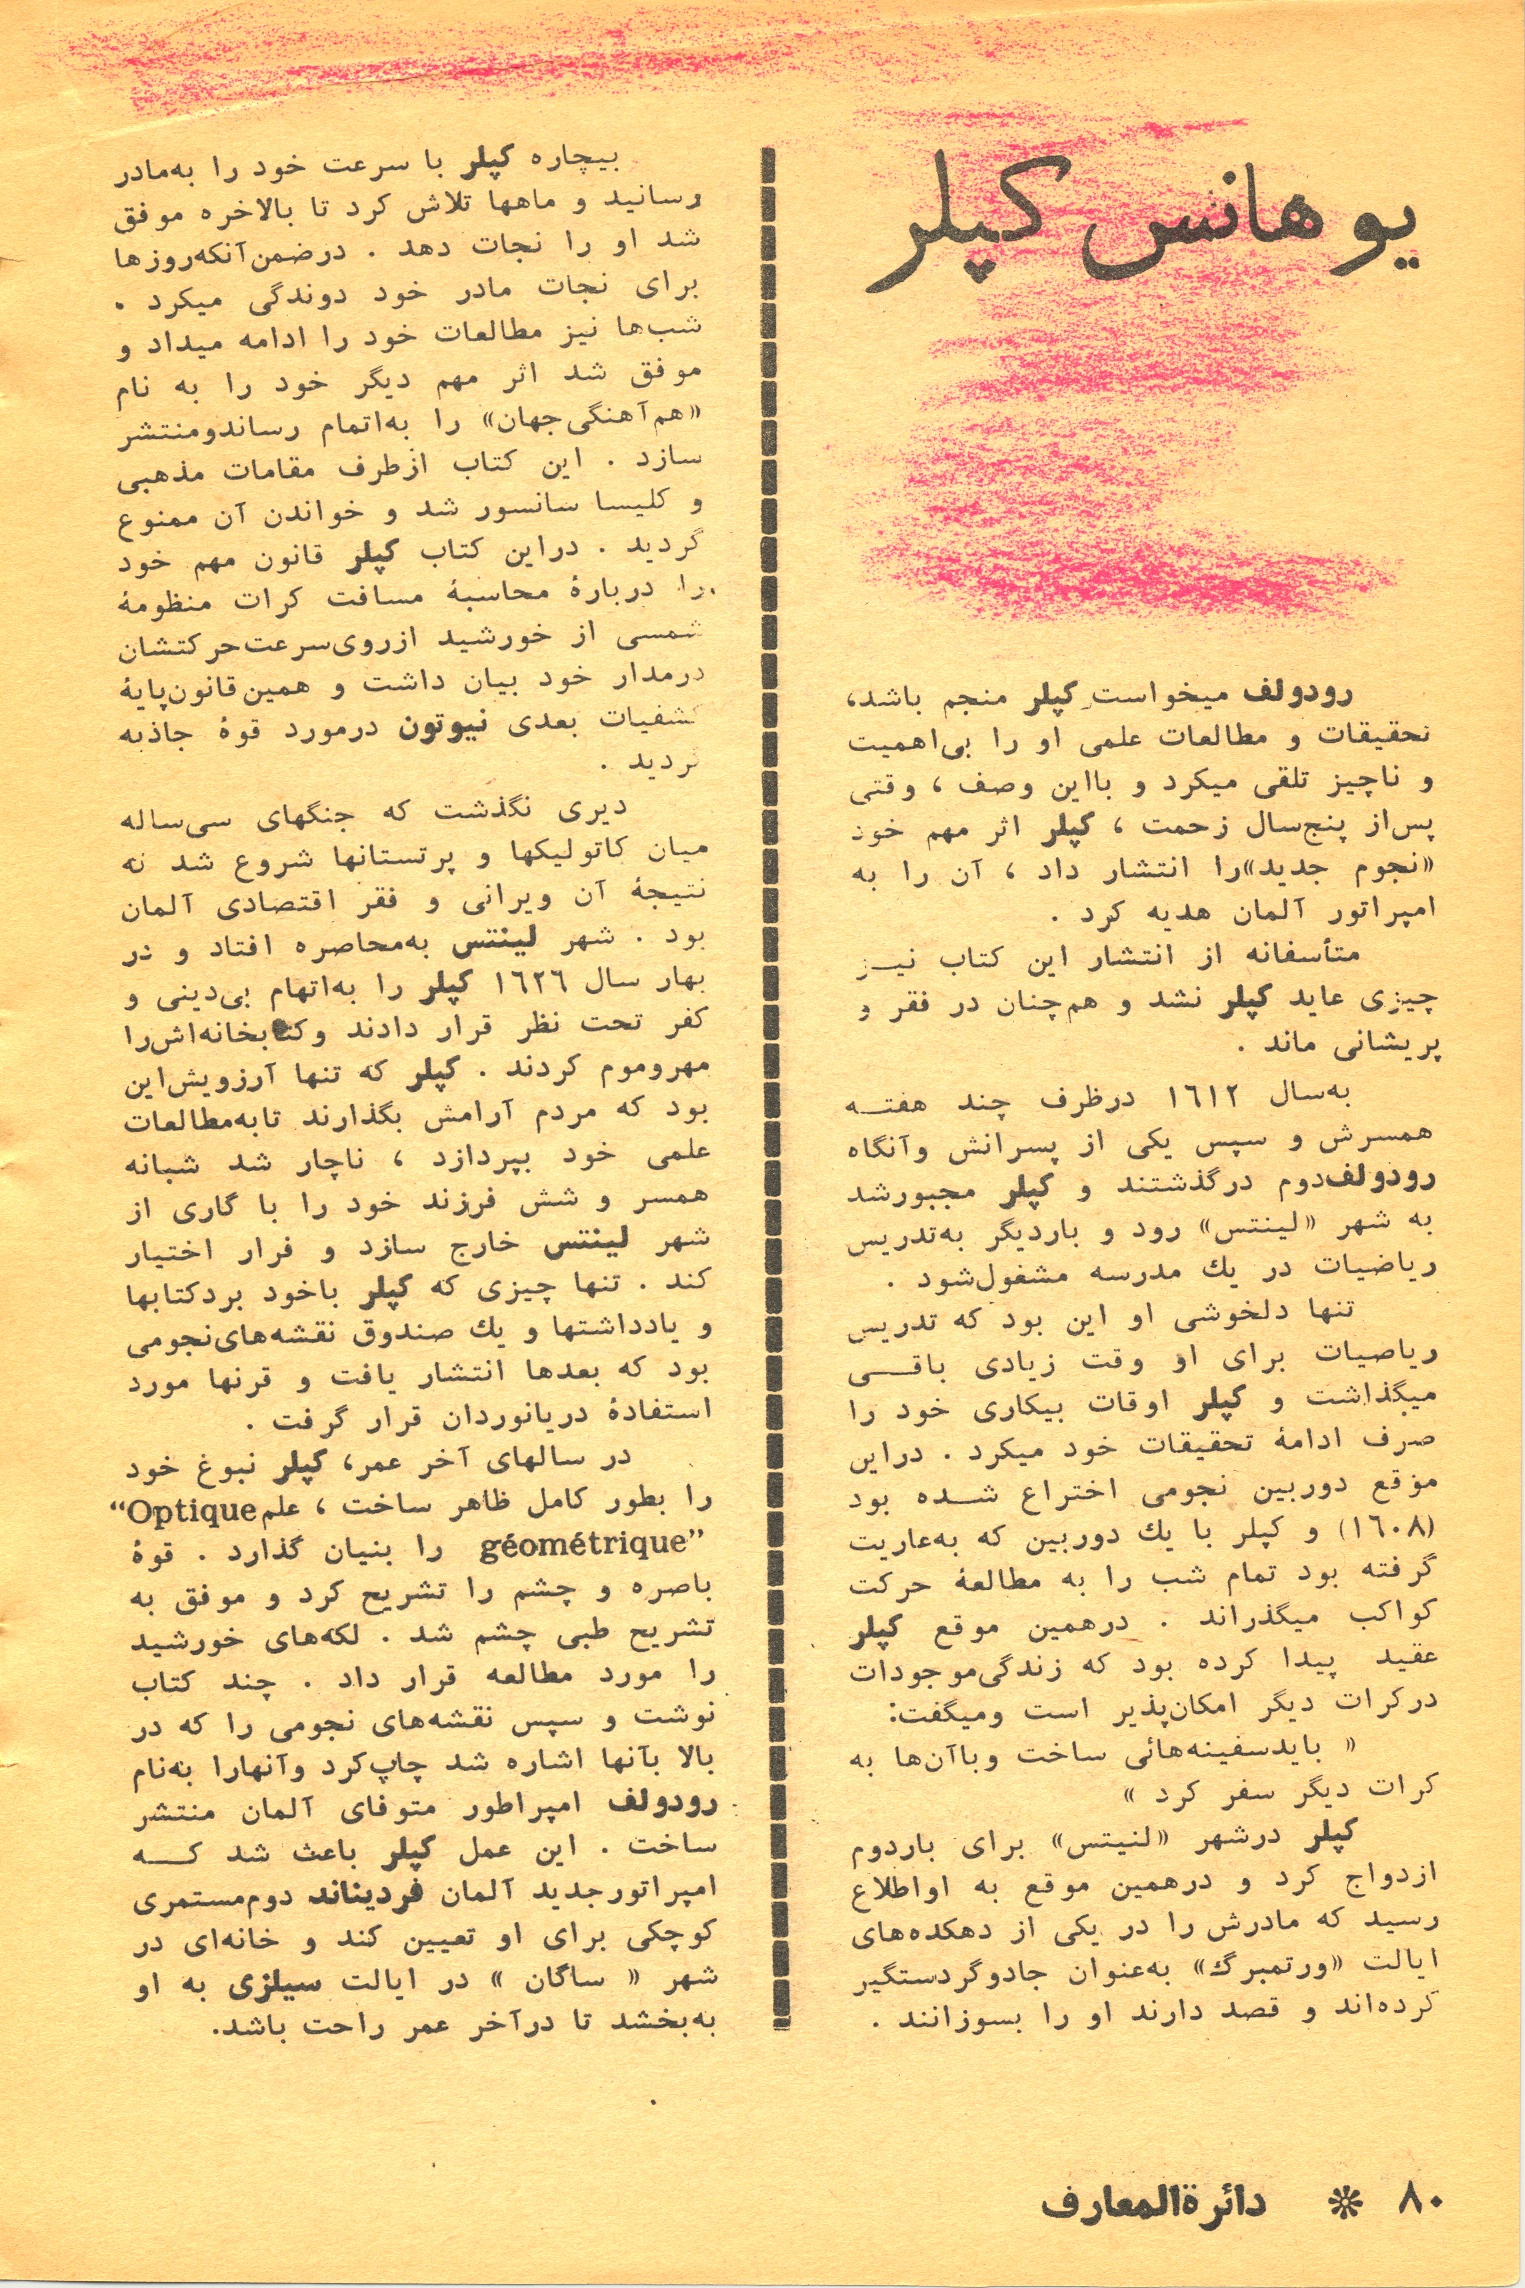 یوهانس کپلر
رودولف میخواست کپلر منجم باشد،
تحقیقات و مطالعات علمی او را بی‌اهمیت
و ناچیز تلقی میکرد و بااین وصف ، وقتی
پس‌از پنج‌سال زحمت ، کپلر اثر مهم خود
«نجوم جدید»را انتشار داد ، آن را به
امپراتور آلمان هدیه کرد .
متأسفانه از انتشار این کتاب نیـز
چیزی عاید کپلر نشد و هم‌چنان در فقر و
پریشانی ماند .
به‌سال ۱۶۱۲ درظرف چند هفتـه
همسرش و سپس یکی از پسرانش وآنگاه
رودولف‌دوم درگذشتند و کپلر مجبورشد
به شهر «لینتس» رود و باردیگر به‌تدریس
ریاضیات در یك مدرسه مشغول‌شود .
تنها دلخوشی او این بود که تدریس
ریاضیات برای او وقت زیادی باقـی
میگذاشت و کپلر اوقات بیکاری خود را
صرف ادامهٔ تحقیقات خود میکرد . دراین
موقع دوربین نجومی اختراع شـده بود
(۱۶۰۸) و کپلر با یك دوربین که به‌عاریت
گرفته بود تمام شب را به مطالعهٔ حرکت
کواکب میگذراند . درهمین موقع کپلر
عقید پیدا کرده بود که زندگی‌موجودات
درکرات دیگر امکان‌پذیر است ومیگفت:
« بایدسفینه‌هائی ساخت وباآن‌ها به
کرات دیگر سفر کرد »
کپلر درشهر «لنیتس» برای باردوم
ازدواج کرد و درهمین موقع به اواطلاع
رسید که مادرش را در یکی از دهکده‌های
ایالت «ورتمبرگ» به‌عنوان جادوگردستگیر
کرده‌اند و قصد دارند او را بسوزانند .
بیچاره کپلر با سرعت خود را به‌مادر
رسانید و ماهها تلاش کرد تا بالاخره موفق
شد او را نجات دهد . درضمن‌آنکه‌روزها
برای نجات مادر خود دوندگی میکرد .
شب‌ها نیز مطالعات خود را ادامه میداد و
موفق شد اثر مهم دیگر خود را به نام
«هم‌آهنگی‌جهان» را به‌اتمام رساندومنتشر
سازد . این کتاب ازطرف مقامات مذهبی
و کلیسا سانسور شد و خواندن آن ممنوع
گردید . دراین کتاب کپلر قانون مهم خود
را دربارهٔ محاسبهٔ مسافت کرات منظومهٔ
شمسی از خورشید ازروی‌سرعت‌حرکتشان
درمدار خود بیان داشت و همین‌قانون‌پایهٔ
کشفیات بعدی نیوتون درمورد قوهٔ جاذبه
گردید .
دیری نگذشت که جنگهای سی‌ساله
میان کاتولیکها و پرتستانها شروع شد که
نتیجهٔ آن ویرانی و فقر اقتصادی آلمان
بود . شهر لینتس به‌محاصره افتاد و در
بهار سال ۱۶۲۶ کپلر را به‌اتهام بی‌دینی و
کفر تحت نظر قرار دادند وکتابخانه‌اش‌را
مهروموم کردند . کپلر که تنها آرزویش‌این
بود که مردم آرامش بگذارند تابه‌مطالعات
علمی خود بپردازد ، ناچار شد شبانه
همسر و شش فرزند خود را با گاری از
شهر لینتس خارج سازد و فرار اختیار
کند . تنها چیزی که کپلر باخود بردکتابها
و یادداشتها و یك صندوق نقشه‌های‌نجومی
بود که بعدها انتشار یافت و قرنها مورد
استفادهٔ دریانوردان قرار گرفت .
در سالهای آخر عمر، کپلر نبوغ خود
را بطور کامل ظاهر ساخت ، علم “Optique
géométrique” را بنیان گذارد . قوهٔ
باصره و چشم را تشریح کرد و موفق به
تشریح طبی چشم شد . لکه‌های خورشید
را مورد مطالعه قرار داد . چند کتاب
نوشت و سپس نقشه‌های نجومی را که در
بالا بآنها اشاره شد چاپ‌کرد وآنهارا به‌نام
رودولف امپراطور متوفای آلمان منتشر
ساخت . این عمل کپلر باعث شد کـه
امپراتورجدید آلمان فردیناند دوم‌مستمری
کوچکی برای او تعیین کند و خانه‌ای در
شهر « ساگان » در ایالت سیلزی به او
به‌بخشد تا درآخر عمر راحت باشد.
۸۰ * دائرةالمعارف